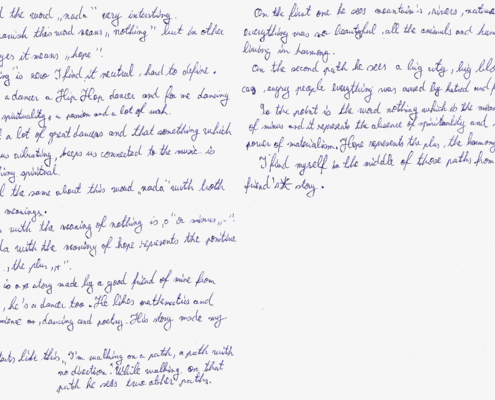 d the word „nada" very interesting.
panish this word means „nothing" but in other
ges it means „hope"!
ing is now I find it neutral, hard to define.
a dancer a Hip Hop dancer and for me dancing
spirituality, a passion and a lot of work.
d a lot of great dancers and that something which
us vibrating, keeps us connected to the music is
ing spiritual.
l the same about this word „nada" with both
meanings.
with the meaning of nothing is „o" or minus „-".
da with the meaning of hope represents the positive
, the plus „+".
is a story made by a good friend of mine from
, he's a dancer too. He likes mathematics and
on, dancing and poetry. His story made my
tarts like this „I'm walking on a path, a path with
no direction. While walking on that
path he sees two other paths.
On the first one he sees mountain's, rivers, nature
everything was so beautyful, all the animals and
living in harmony.
On the second path he sees a big city, big
cars, angry people everything was owed by hatred and
In the point is the word nothing which is the
of minus and it represents the absence of spirituality and
power of materialism. Hope represents the plus, the harmony
I find myself in the middle of those paths from
friend's story.